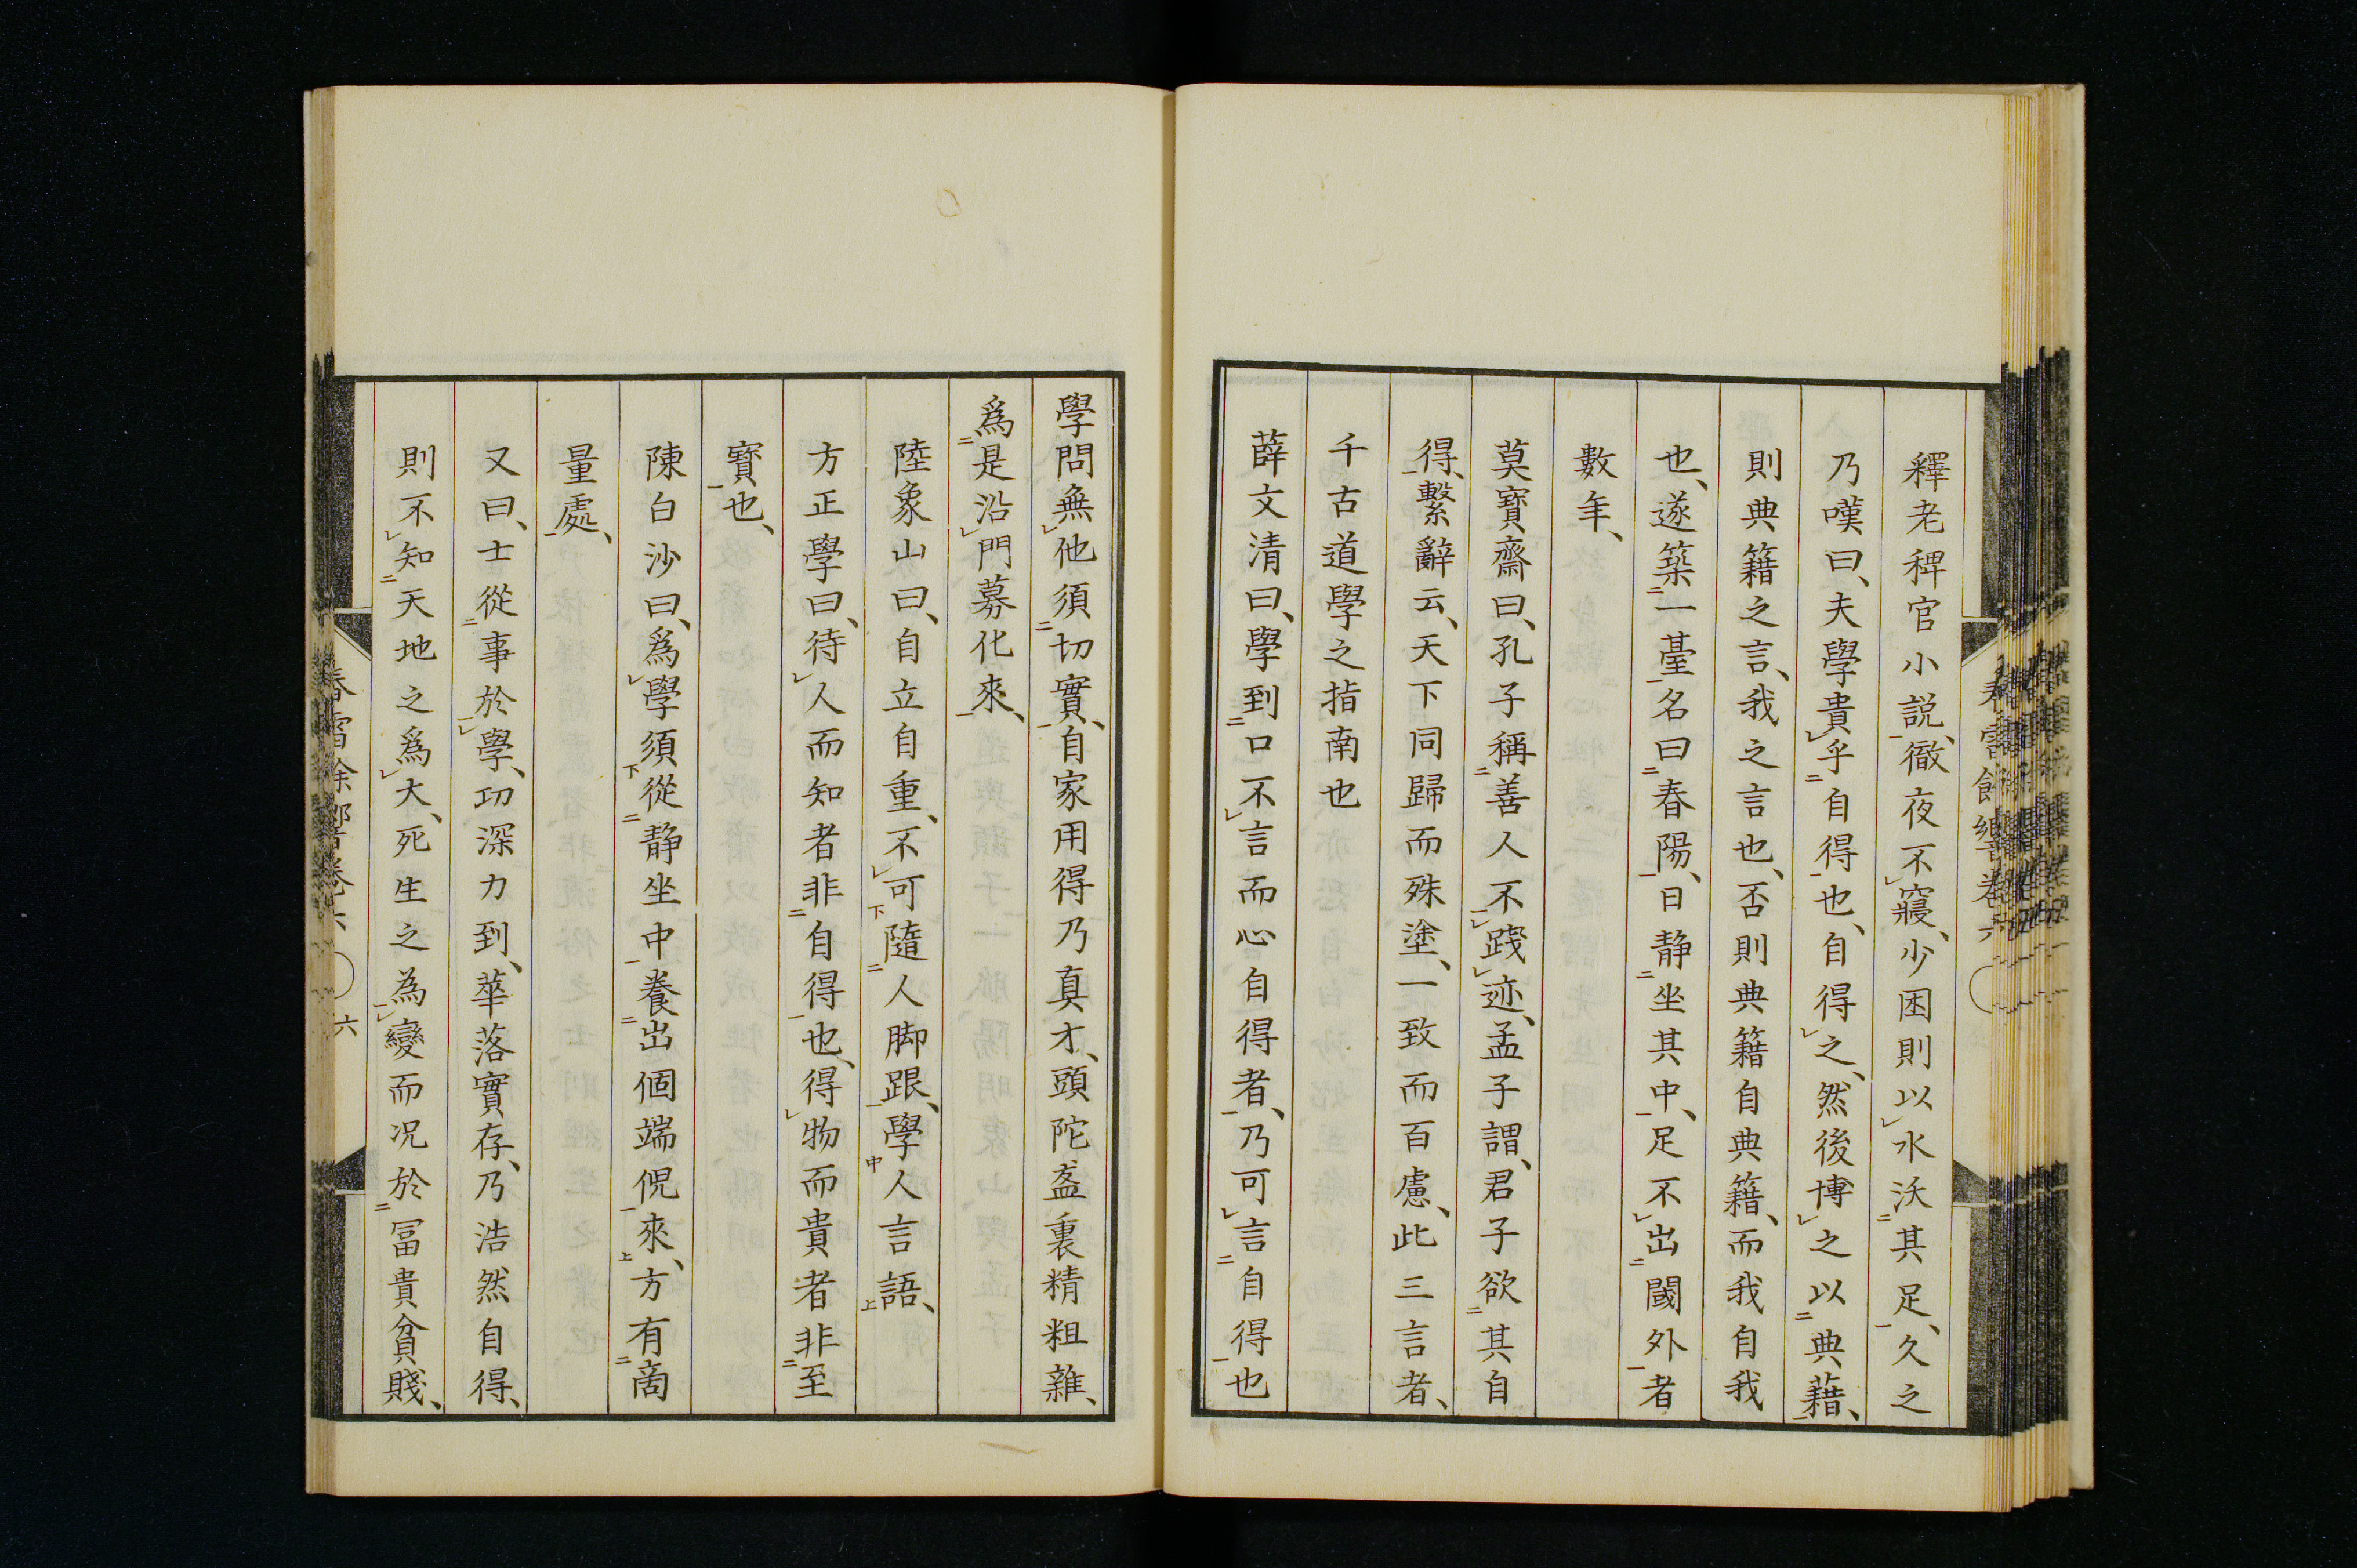 釋老稗官小説、徹夜不寢、少困則以水沃其足、久之
乃嘆曰、夫學貴乎自得也、自得之、然後博之以典藉、
則典籍之言、我之言也、否則典籍自典籍、而我自我
也、遂築一臺名曰春陽、日靜坐其中、足不出閾外者
數年、
莫寶齋曰、孔子稱善人不踐迹、孟子謂、君子欲其自
得、繫辭云、天下同歸而殊塗、一致而百慮、此三言者、
千古道學之指南也
薛文清曰、學到口不言而心自得者、乃可言自得也
學問無他須切實、自家用得乃真才、頭陀盋裏精粗雜、
爲是沿門募化來、
陸象山曰、自立自重、不可隨人脚跟、學人言語、
方正學曰、待人而知者非自得也、得物而貴者非至
寶也、
陳白沙曰、爲學須從靜坐中養出個端倪來、方有商
量處、
又曰、士從事於學、功深力到、華落實存、乃浩然自得、
則不知天地之爲大、死生之為變而况於冨貴貧賤、
春雪餘響卷六
六